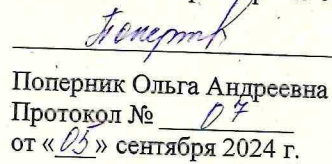 Поперник Ольга Андреевна
Протокол № 07
от «05» сентября 2024 г.